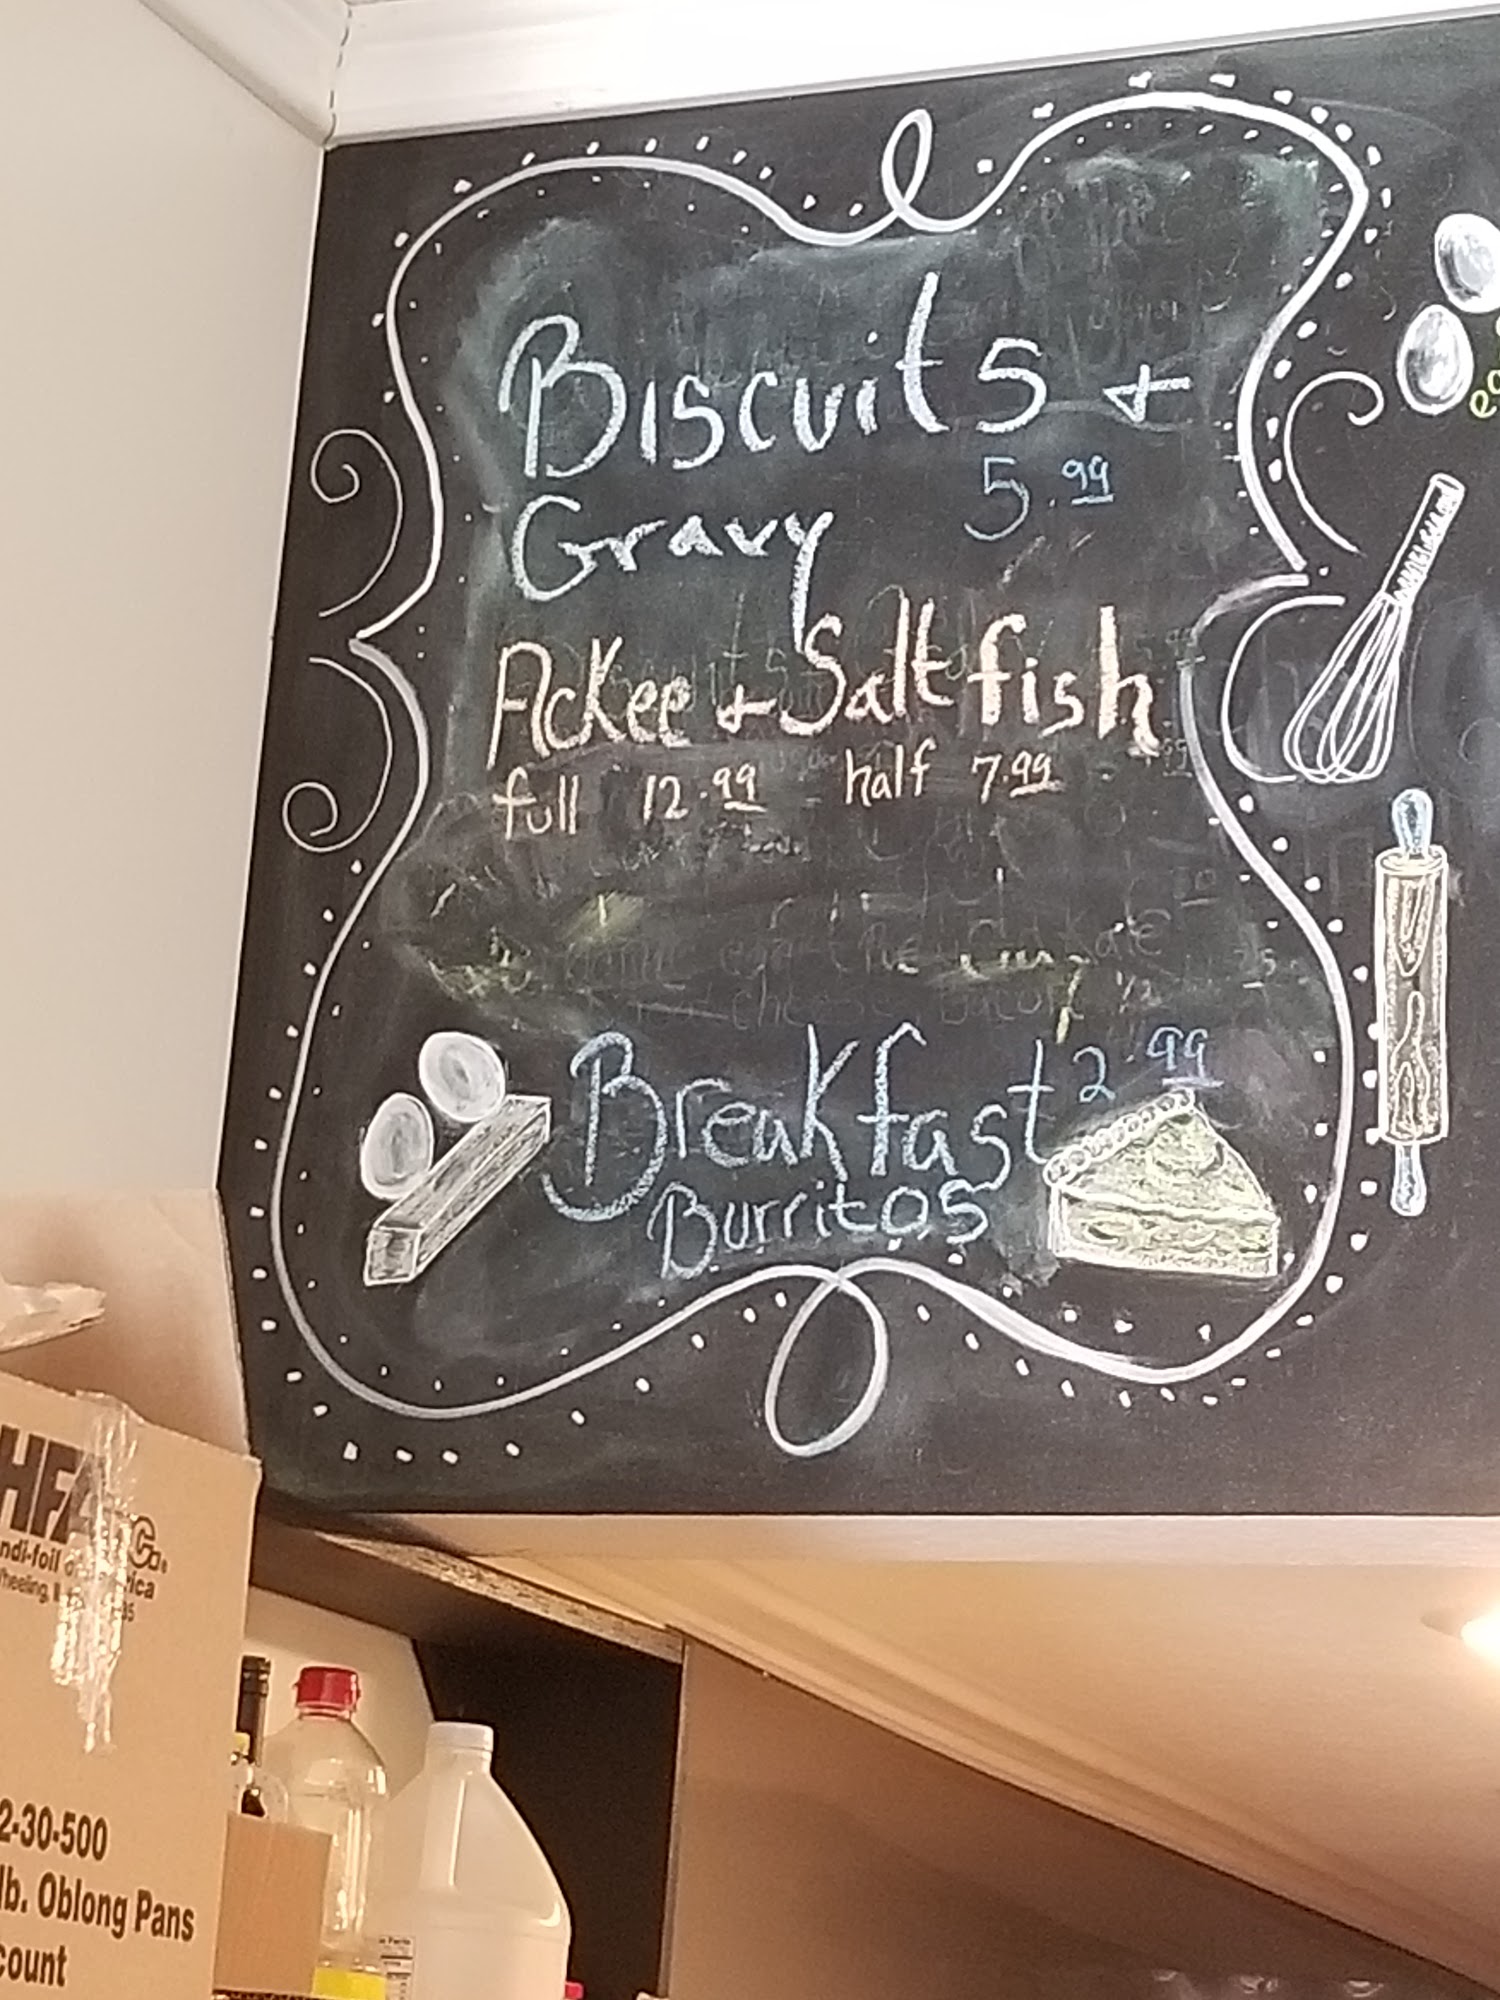 Biscuits +
Gravy 5.99
Ackee + Saltfish
full 12.99 half 7.99
Breakfast 2.99
Burritos
HFA
ndi-foil of America
Wheeling,
2-30-500
lb. Oblong Pans
count